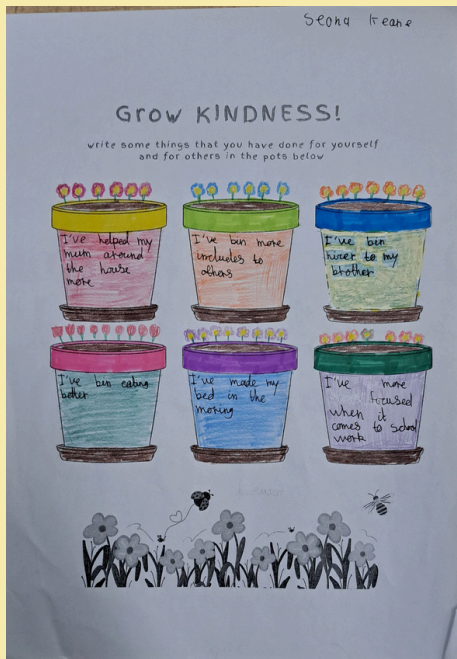 Seona Keane
Grow KINDNESS!
write some things that you have done for yourself
and for others in the pots below
I've helped my
mum around
the house
more
I've bin more
includes to
others
I've bin
nicer to my
brother
I've bin eating
better
I've made my
bed in the
moring
I've more
focused
when it
comes to school
work